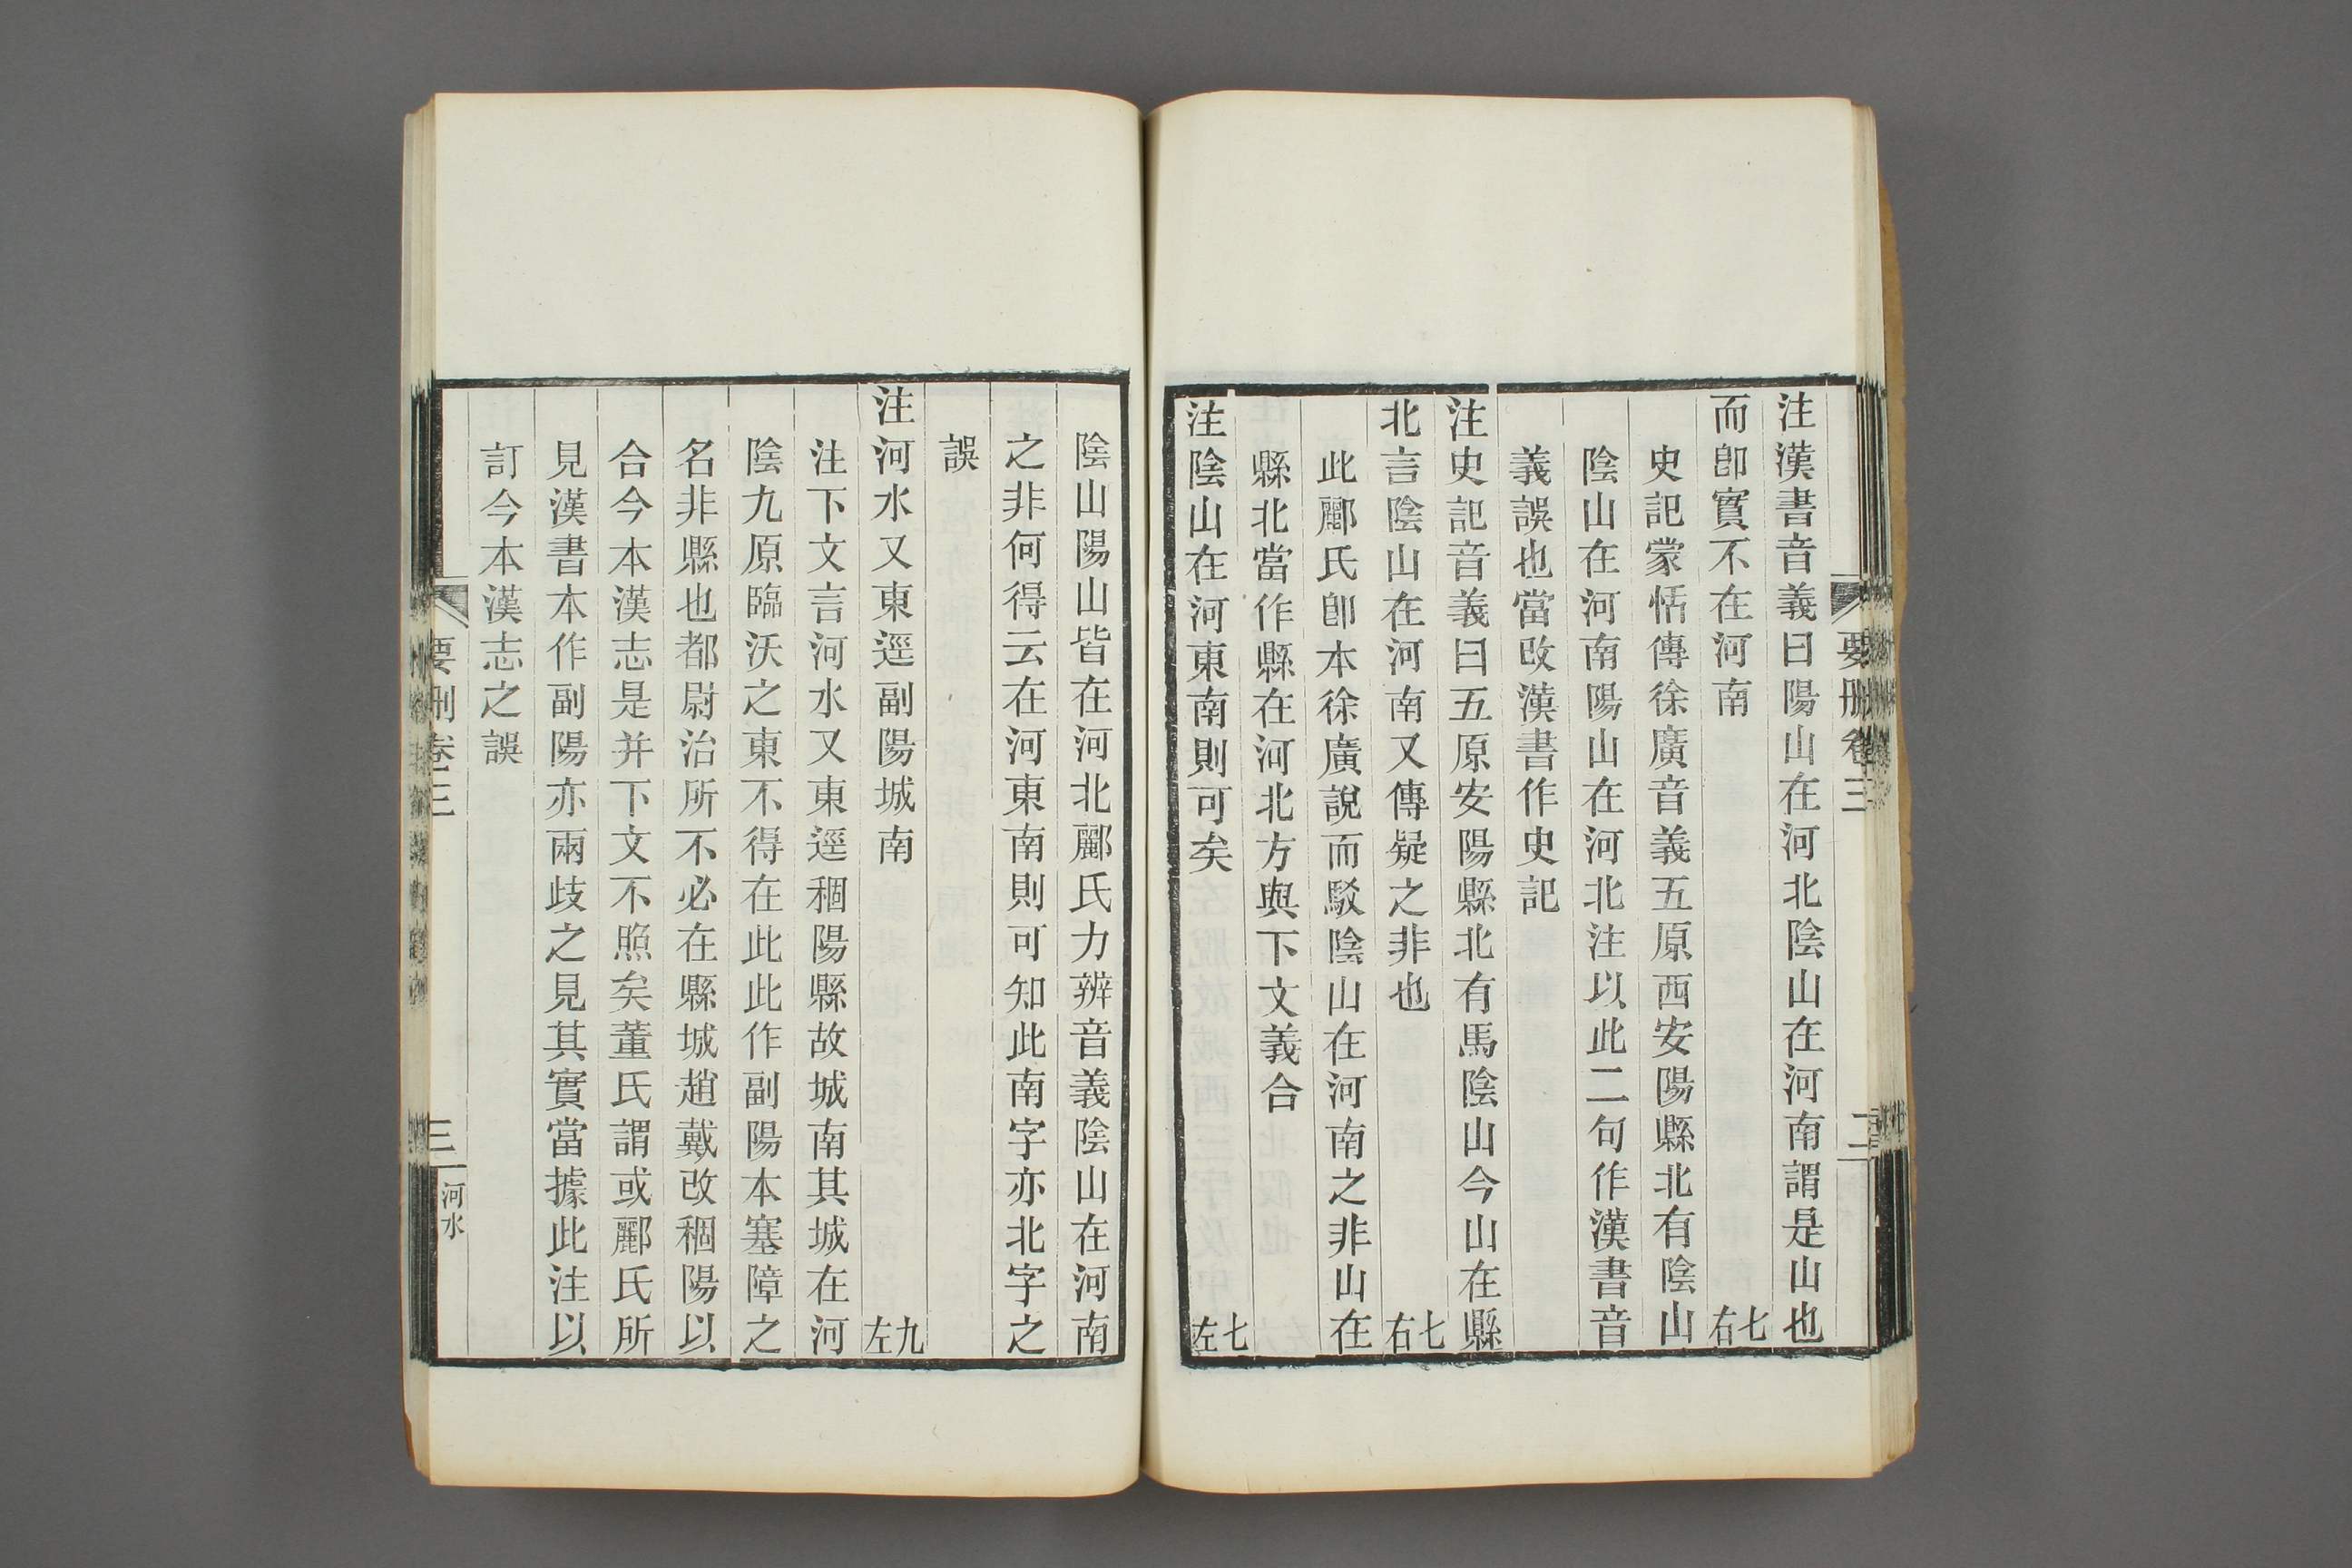 要刪卷三
二
注漢書音義曰陽山在河北陰山在河南謂是山也
而卽實不在河南 七右
史記蒙恬傳徐廣音義五原西安陽縣北有陰山
陰山在河南陽山在河北注以此二句作漢書音
義誤也當改漢書作史記
注史記音義曰五原安陽縣北有馬陰山今山在縣
北言陰山在河南又傳疑之非也 七右
此酈氏卽本徐廣說而駁陰山在河南之非山在
縣北當作縣在河北方與下文義合
注陰山在河東南則可矣 七左
陰山陽山皆在河北酈氏力辨音義陰山在河南
之非何得云在河東南則可知此南字亦北字之
誤
注河水又東逕副陽城南 九左
注下文言河水又東逕稒陽縣故城南其城在河
陰九原臨沃之東不得在此此作副陽本塞障之
名非縣也都尉治所不必在縣城趙戴改稒陽以
合今本漢志是并下文不照矣董氏謂或酈氏所
見漢書本作副陽亦兩歧之見其實當據此注以
訂今本漢志之誤
要刪卷三
三
河水